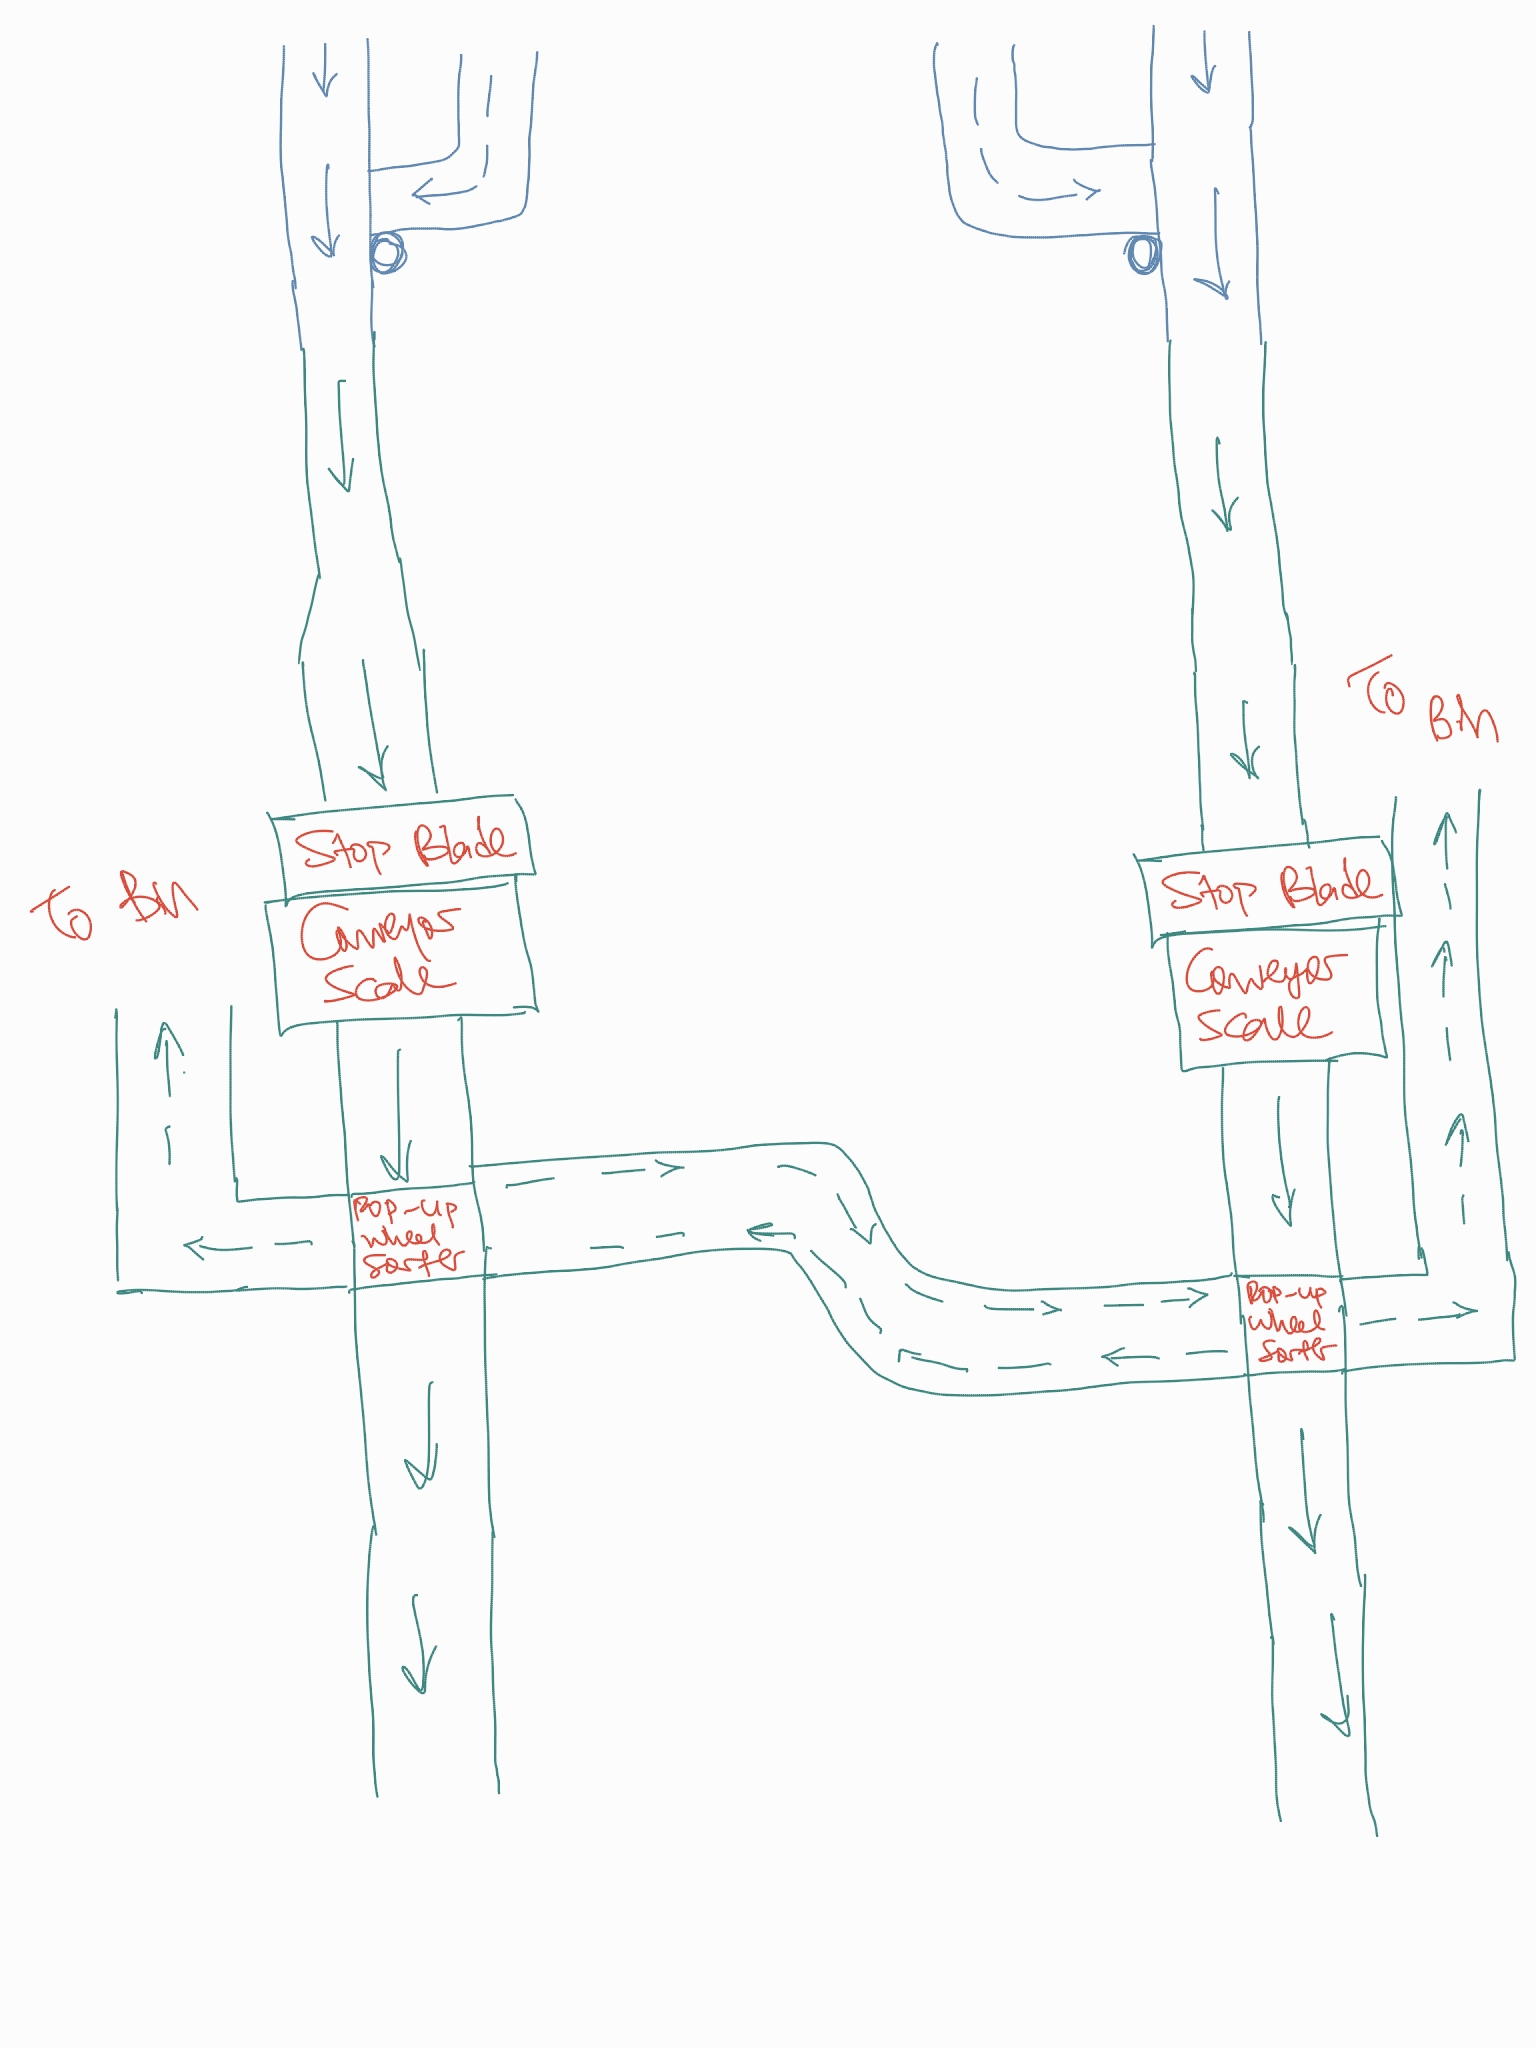 To Bin
Stop Blade
Conveyor
Scale
Pop-up
wheel
Sorter
To Bin
Stop Blade
Conveyor
Scale
Pop-up
wheel
Sorter